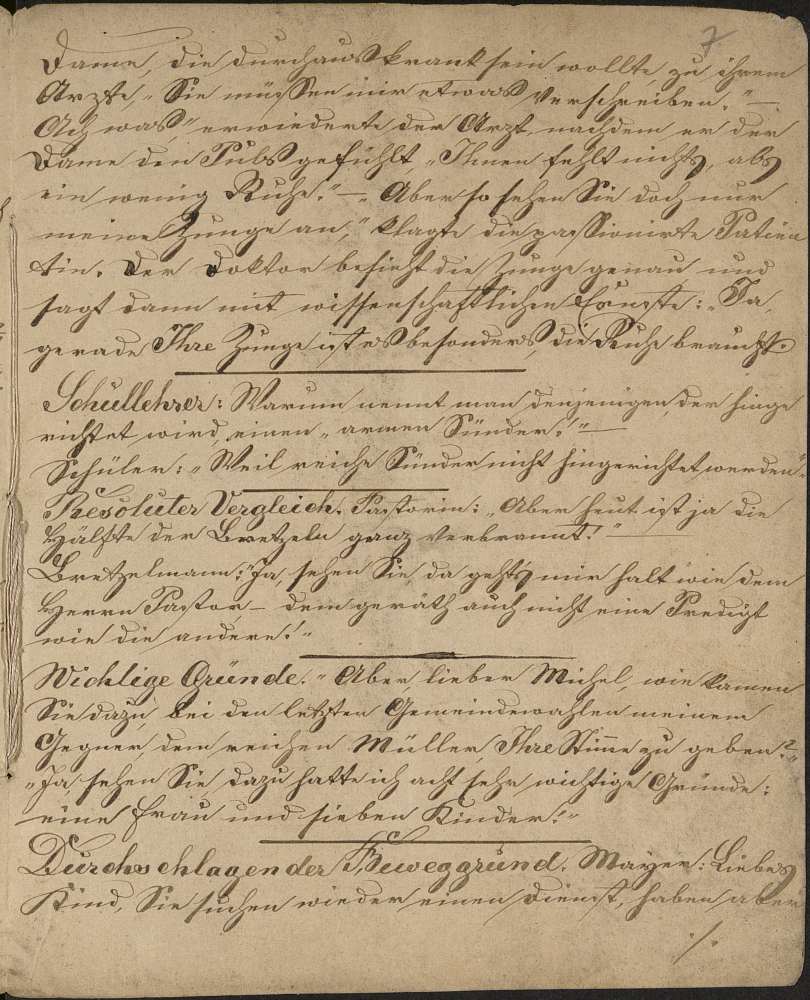 7
Dame, die durchaus krank sein wollte, zu ihrem
Arzte, „Sie müssen mir etwas verschreiben.“ —
„Ach was,“ erwiederte der Arzt, nachdem er der
Dame den Puls gefühlt, „Ihnen fehlt nichts, als
ein wenig Ruhe.“ — „Aber so sehen Sie doch nur
meine Zunge an,“ klagte die passionirte Patien
tin. Der Doktor besieht die Zunge genau und
sagt dann mit wissenschaftlichem Ernste: „Ja,
gerade Ihre Zunge ist es besonders, die Ruhe braucht.
Schullehrer: Warum nennt man denjenigen, der hinge
richtet wird, einen „armen Sünder!“ —
Schüler: „Weil reiche Sünder nicht hingerichtet werden“.
Resoluter Vergleich. Pastorin: „Aber heut ist ja die
Hälfte der Bretzeln ganz verbrannt!“ —
Bretzelmann: „Ja, sehen Sie, da geht's mir halt wie dem
Herrn Pastor, — dem geräth auch nicht eine Predigt
wie die andere!“
Wichtige Gründe. „Aber, lieber Michel, wie kamen
Sie dazu, bei den letzten Gemeindewahlen meinem
Gegner, dem reichen Müller, Ihre Stimme zu geben?“
„Ja sehen Sie, dazu hatte ich acht sehr wichtige Gründe:
eine Frau und sieben Kinder!“
Durchschlagender Beweggrund. Mayer: Liebes
Kind, Sie suchen wieder einen Dienst, haben aber
./.